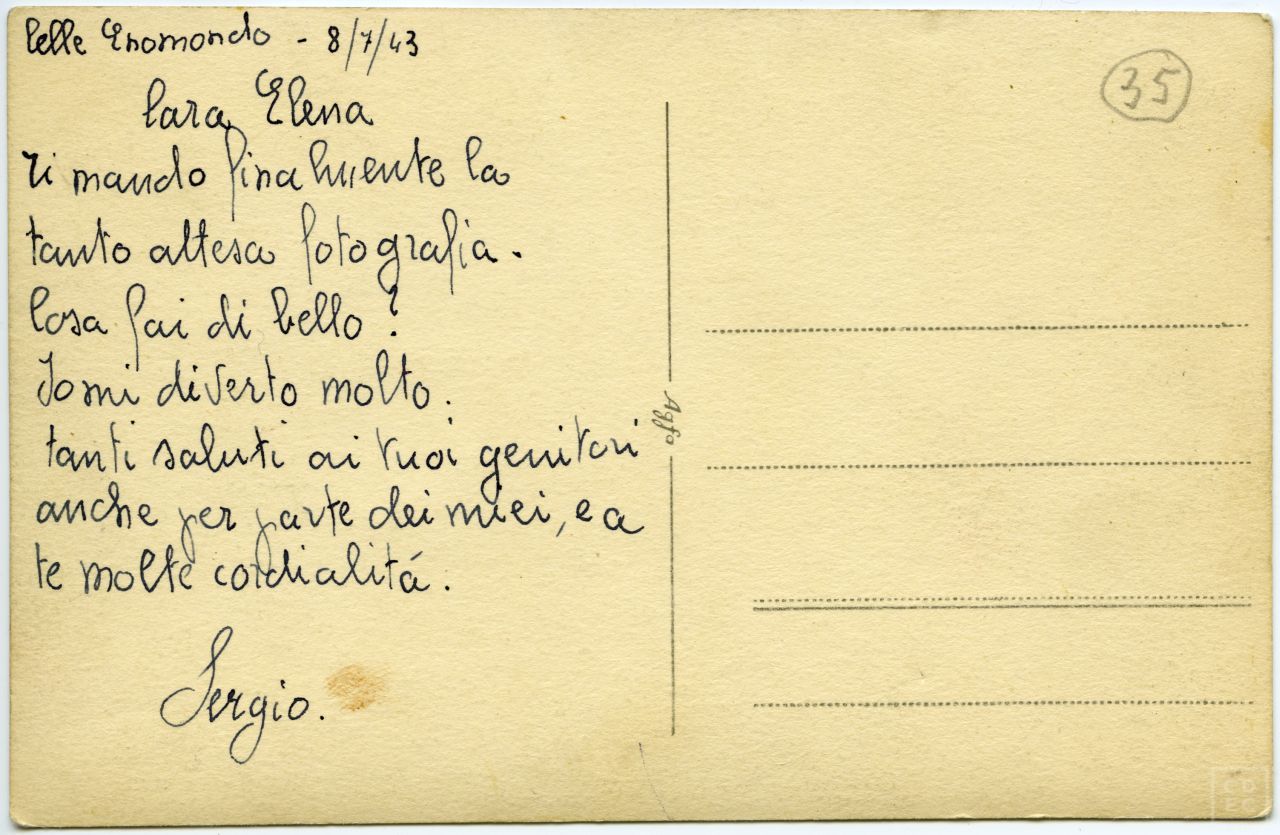 Celle Enomondo - 8/7/43
35
Cara Elena
Ti mando finalmente la
tanto attesa fotografia.
Cosa fai di bello?
Io mi diverto molto.
tanti saluti ai tuoi genitori
anche per parte dei miei, e a
te molte cordialitá.
Sergio.
Agfa
CD
EC